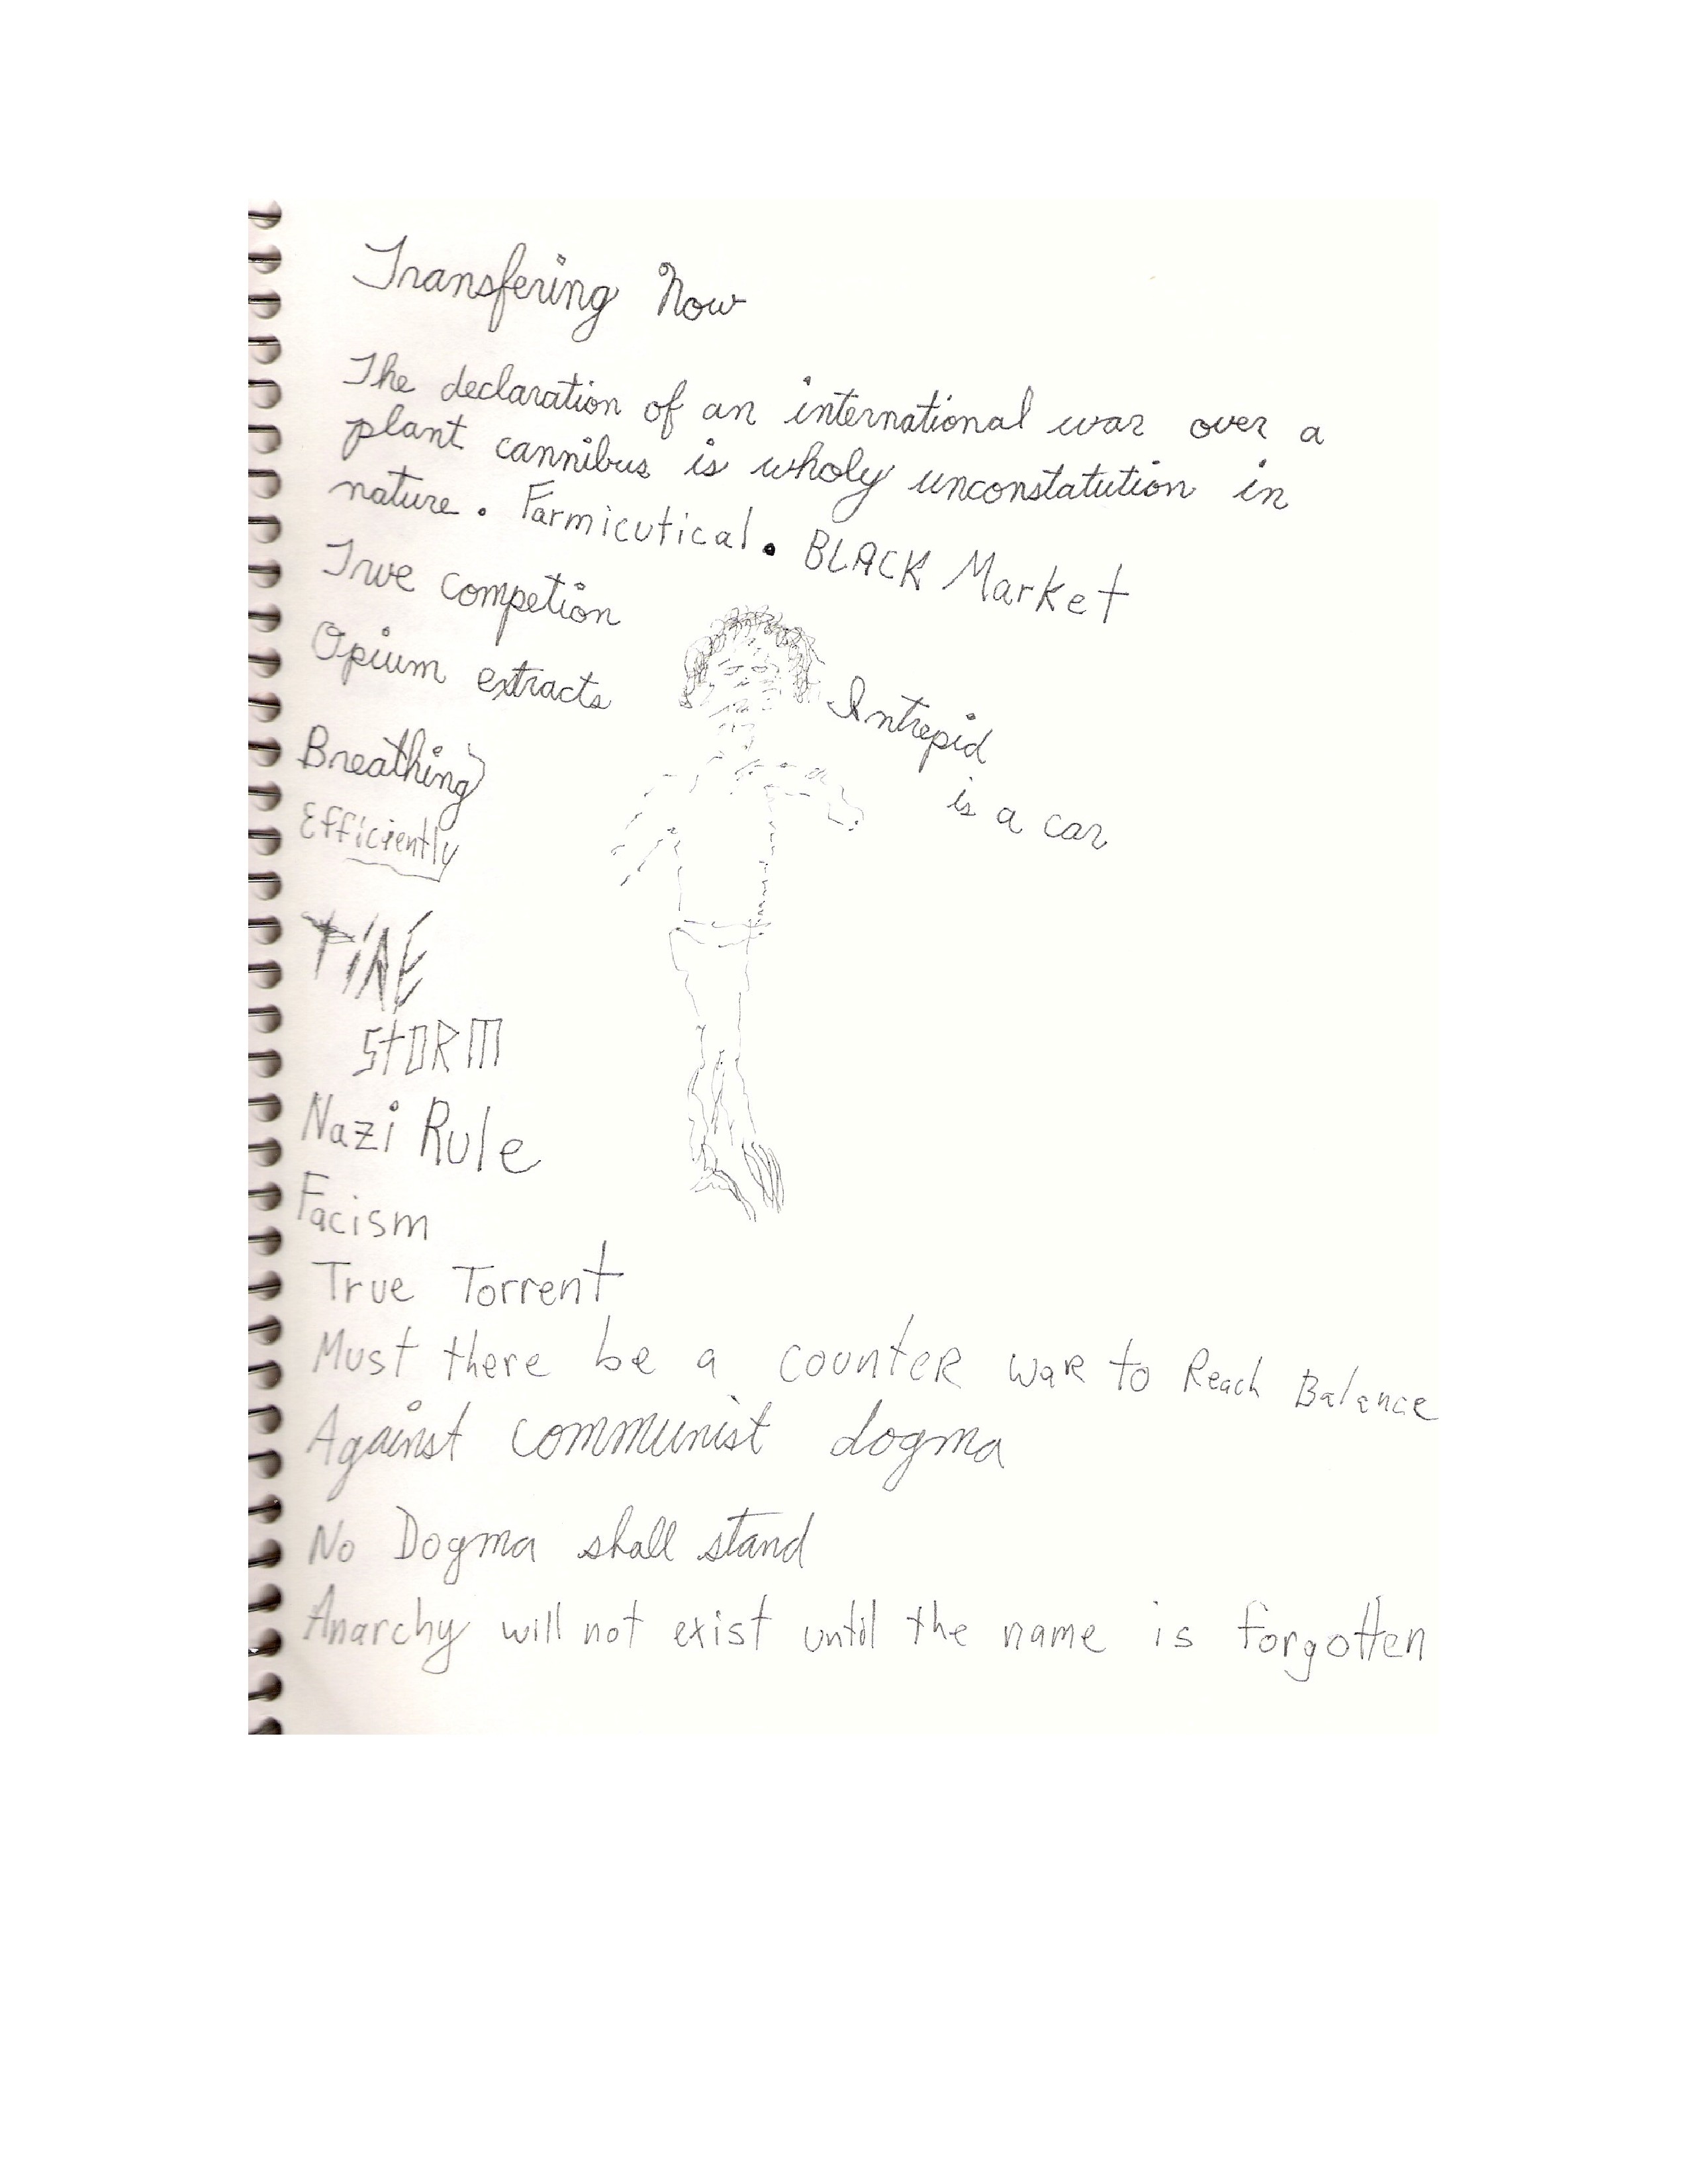 Transfering Now
The declaration of an international war over a
plant cannibus is wholy unconstatution in
nature. Farmicutical. BLACK Market
True competion
Opium extracts
Intrepid
is a car
Breathing
Efficiently
STORM
Nazi Rule
Facism
True Torrent
Must there be a counter war to Reach Balance
Against communist dogma
No Dogma shall stand
Anarchy will not exist until the name is forgotten